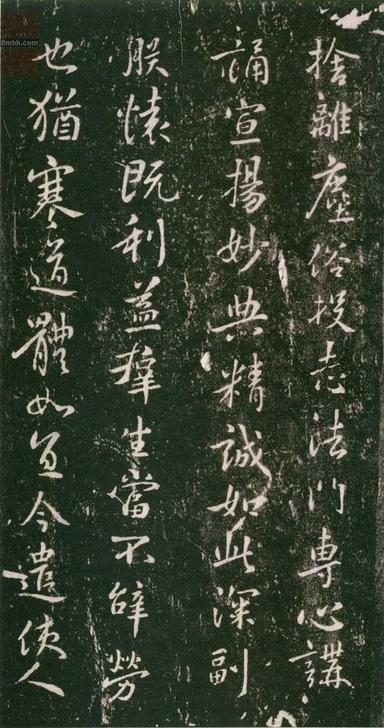 捨離塵俗投志法門專心講
誦宣揚妙典精誠如此深副
朕懷既利益羣生當不辭勞
也猶寒道體如宜今遣使人
8mhh.com